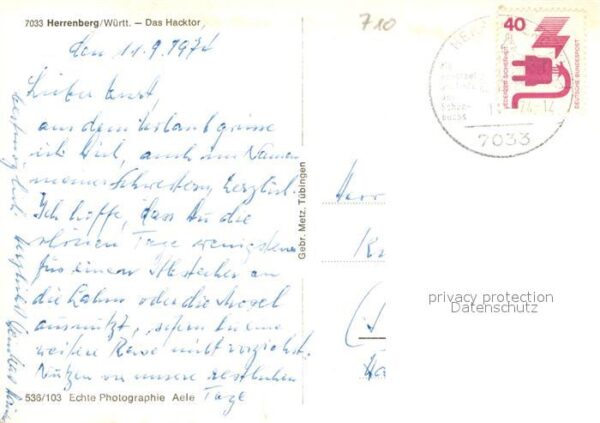 7033 Herrenberg/Württ. — Das Hacktor
710
den 11.9.1974
Lieber Kurt,
aus dem Urlaub grüsse
ich Dich, auch im Namen
meiner Schwestern, herzlich.
Ich hoffe, dass Du die
schönen Tage wenigstens
für einen Abstecher an
die Lahn oder die Mosel
ausnutzt, sofern Du eine
weitere Reise nicht vorziehst.
Nutzen wir unsere restlichen
Tage
536/103 Echte Photographie Aele
Gebr. Metz, Tübingen
40
DEUTSCHE BUNDESPOST
7033
Herr
privacy protection
Datenschutz